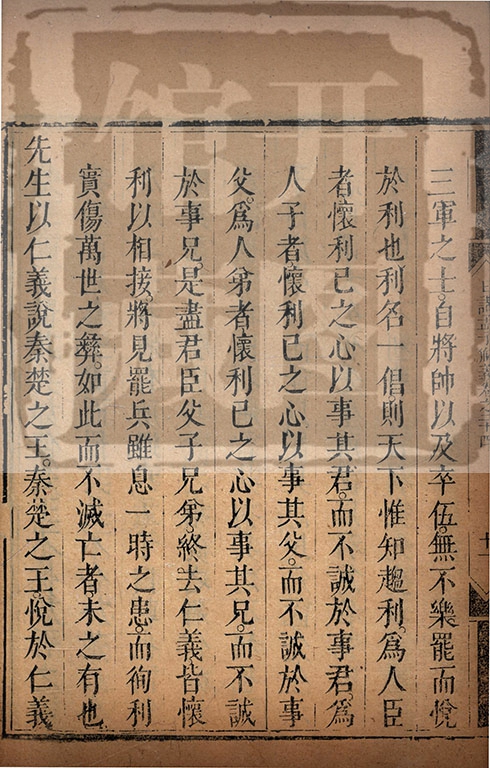 三軍之士。自將帥以及卒伍。無不樂罷而悅
於利也利名一倡則天下惟知趨利。爲人臣
者懷利己之心以事其君。而不誠於事君。爲
人子者懷利己之心以事其父。而不誠於事
父。爲人弟者懷利己之心以事其兄。而不誠
於事兄。是盡君臣父子兄弟。終去仁義皆懷
利以相接。將見罷兵雖息一時之患。而徇利
實傷萬世之彝。如此而不滅亡者未之有也
先生以仁義說秦楚之王。秦楚之王。悅於仁義